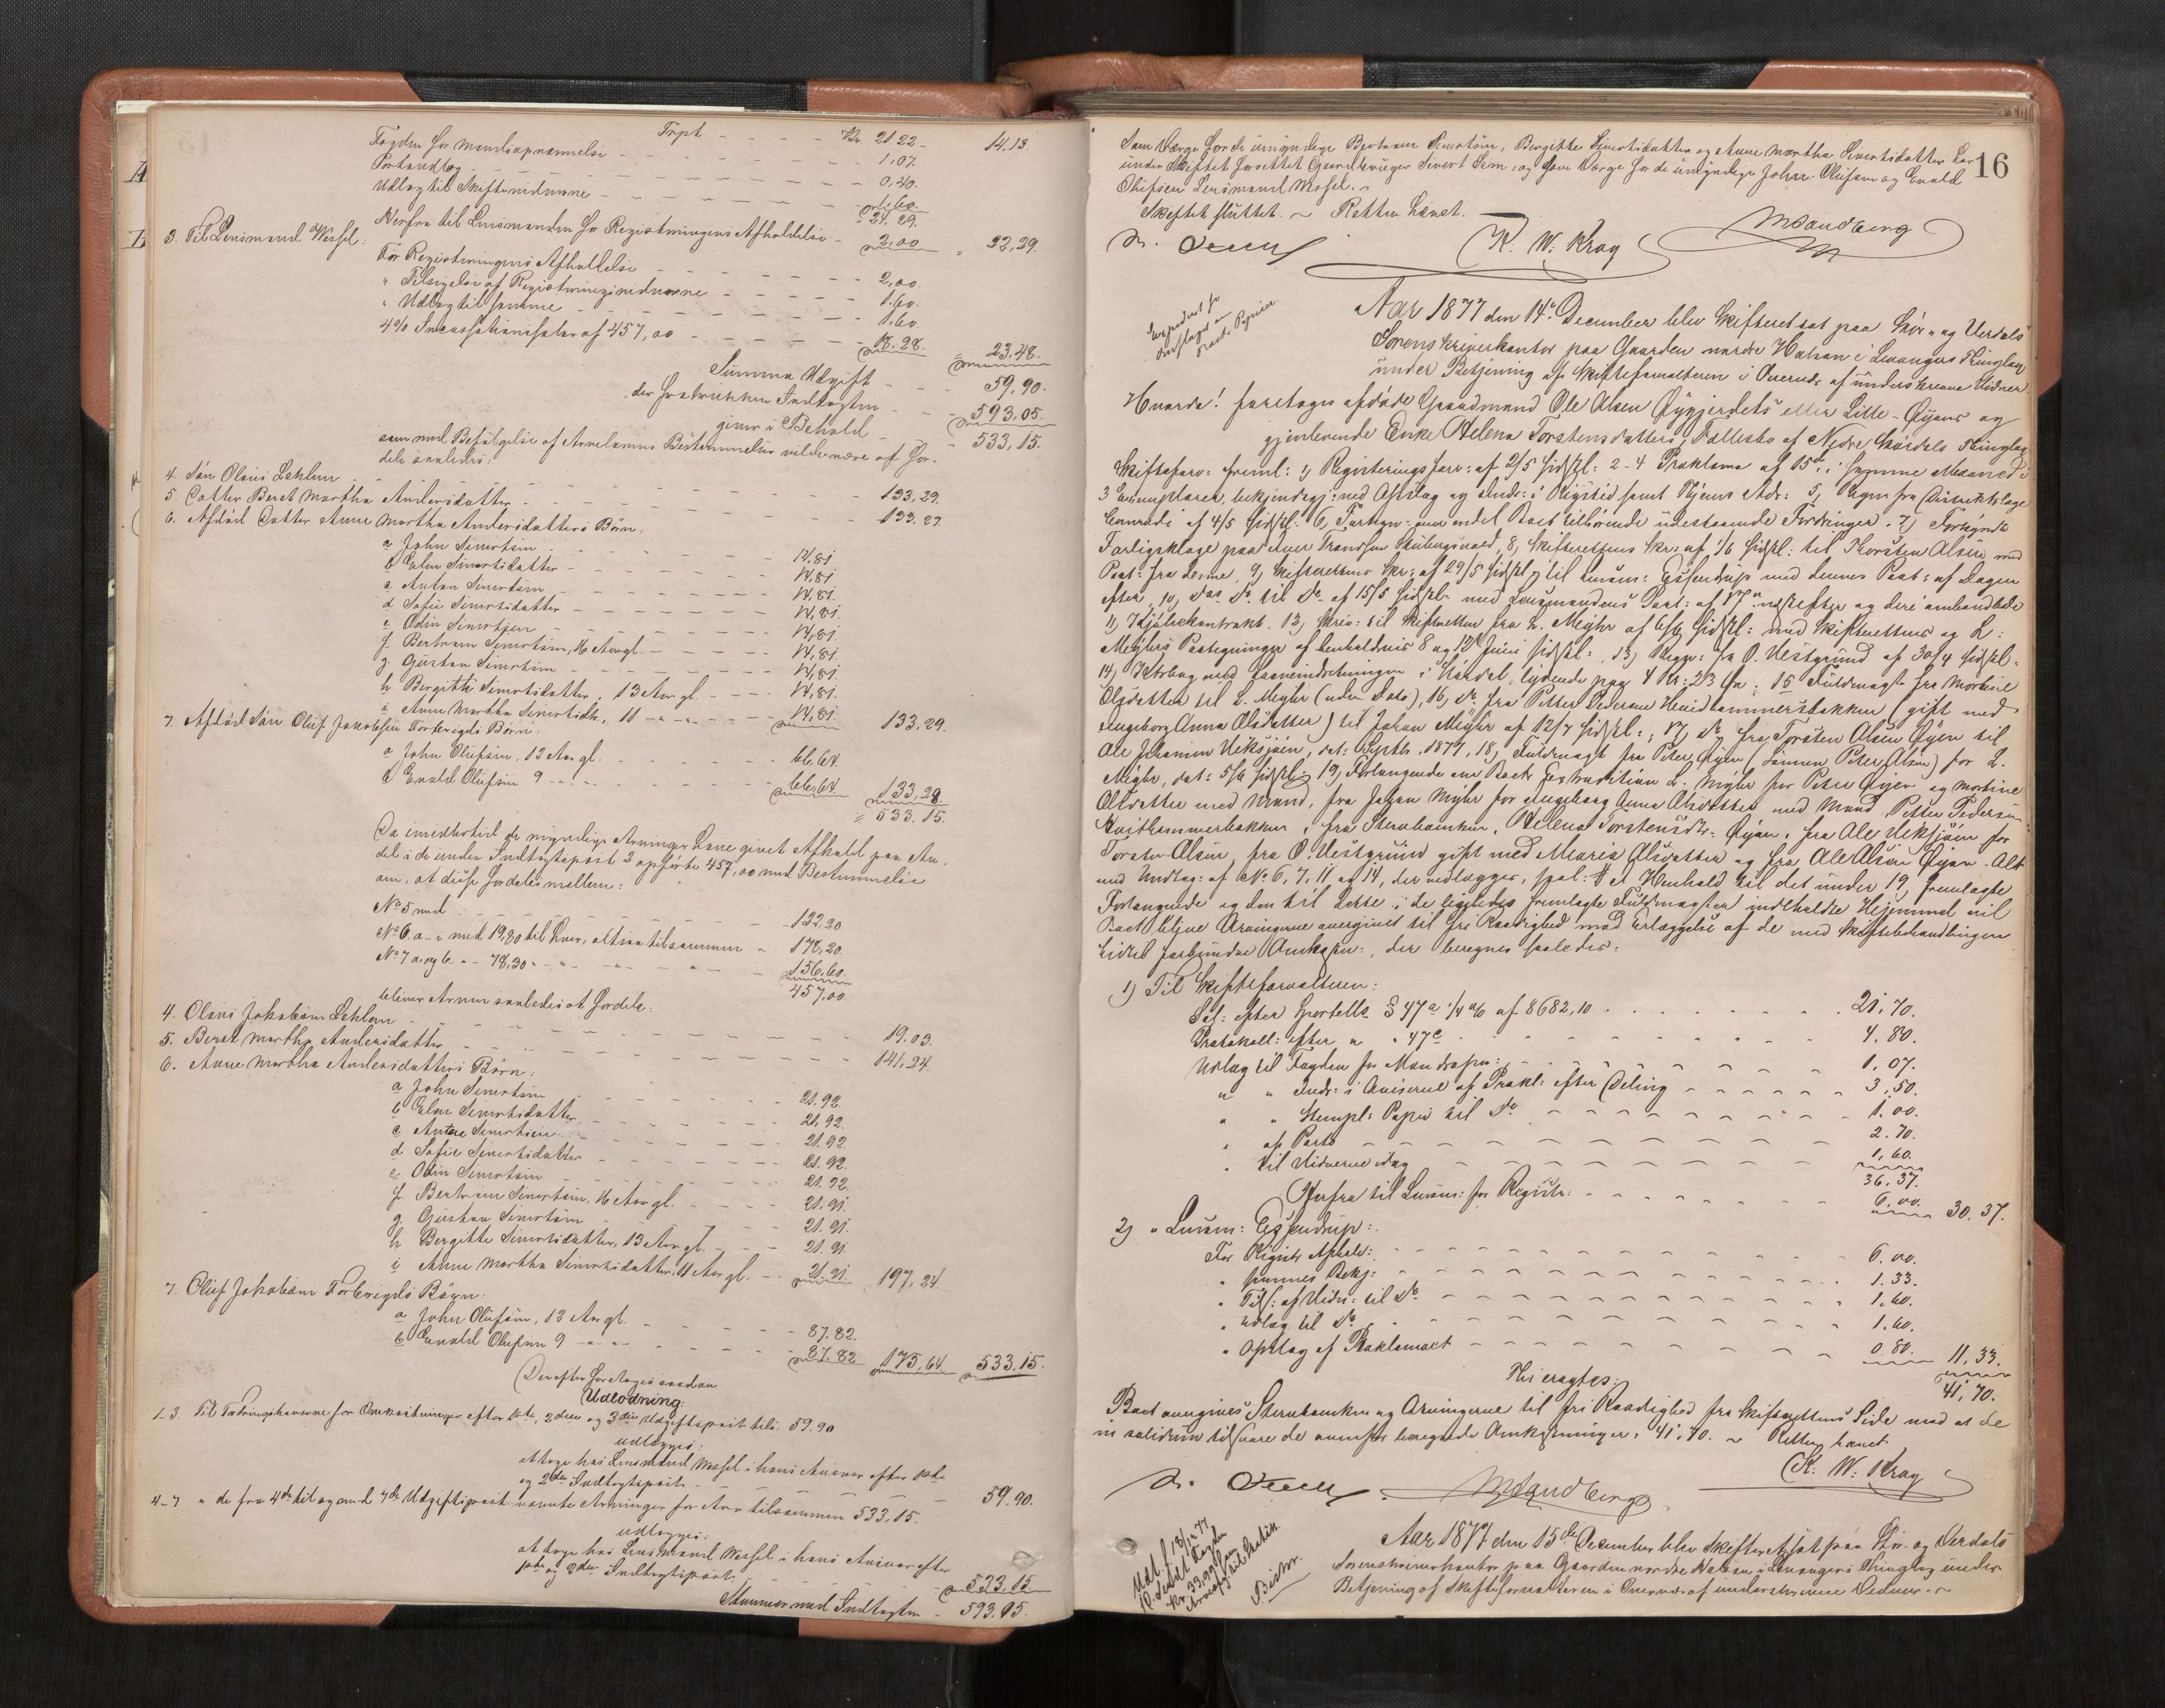 Trpt - - - - Kr. 21.22 - 14.13.
Fogden for Mandsopnævnelse - - - - 1,07.
Portoudlæg - - - - 0,40.
Udlæg til Skiftevidnerne - - - - 1,60.
24.29.
Herfra til Lensmanden for Registreringens Afholdelse - 2,00 " 22,29.
3. Til Lensmand Wessel:
For Registreringens Afholdelse - - - - 2,00
" Tilsigelse af Registreringsvidnerne - - - 1.60.
" Udlæg til samme - - - - 1.60.
4% Incassationssalær af 457,00 - - - - 18.28. " 23.48.
Summa Udgift - - - 59,90.
der fratrukken Indtægten - - - 593.05.
giver i Behold - - 533,15.
som med Befølgelse af Arveladerens Bestemmelse vilde være at for-
dele saaledes:
4. Søn Olaus - - - - 133,29.
5. Datter Beret Martha Andersdatter - - - - 133.29.
6. Afdød Datter Anne Martha Andersdatters Børn:
a John Sivertsen - - - 14,81
b Elen Sivertsdatter - - - 14,81
c Anton Sivertsen - - - 14,81.
d Sofie Sivertsdatter - - - 14,81.
e Odin Sivertsen - - - 14,81.
f. Bertram Sivertsen, 16 Aar gl. - - 14,81.
g. Gustav Sivertsen - - - 14,81.
h Bergitte Sivertsdatter, 13 Aar gl. - - - 14,81.
i Anne Martha Sivertsdtr., 11 - " - " - 14,81. 133,29.
7. Afdød Søn Oluf Jakobsen Forbregds Børn:
a John Olufsen, 12 Aar gl. - - - 66,64.
b Evald Olufsen 9 - " - " - 66,64 133,28.
= 533.15.
Da imidlertid de myndige Arvinger have givet Afkald paa An-
del i de under Indtægtspost 2 opførte 457,00 med Bestemmelse
om, at disse fordeles mellem:
No 5 med - - - - 122,20
No 6. a - i med 19,80 til hver, altsaa tilsammen - 178,20.
No 7 a og b - " 78,30 - " - " - " - 156,60.
457,00
bliver Arven saaledes at fordele:
4. Olaus Jakobsen - - - - 19.03.
5. Beret Martha Andersdatter - - - - 141,24.
6. Anne Martha Andersdatters Børn:
a John Sivertsen - - - 21.92.
b Elen Sivertsdatter - - - 21,92.
c Anton Sivertsen - - - 21.92.
d Sofie Sivertsdatter - - - 21.92.
e Odin Sivertsen - - - 21.92.
f. Bertram Sivertsen, 16 Aar gl. - - 21.91.
g. Gustav Sivertsen - - - 21.91.
h Bergitte Sivertsdatter, 13 Aar gl. - - 21.91
i Anne Martha Sivertsdatter, 11 Aar gl. - - 21.91. 197,24.
7. Oluf Jakobsen Forbregds Børn:
a John Olufsen, 12 Aar gl. - - - 87.82.
b Evald Olufsen 9 - " - " - 87.82 175,64 533.15.
Derefter foretoges saadan
Udlodning:
1-3. Til Fordringshaverne for Omkostninger efter 1ste, 2den og 3die Udgiftspost tils. 59.90
udlægges:
at tage hos Lensmand Wessel i hans Ansvar efter 1ste
og 2den Indtægtspost - - - 59.90.
4-7 " de fra 4de til og med 7de Udgiftspost nævnte Arvinger for Arv tilsammen 533.15.
udlægges:
at tage hos Lensmand Wessel i hans Ansvar efter
1ste og 2den Indtægtspost - - 533.15
Stemmer med Indtægten - 593.05.
16
Som Værge for de umyndige Bertram Sivertsen, Bergitte Sivertsdatter og Anne Martha Sivertsdatter har
under Skiftet forrettet Gaardbruger Sivert Sem, og som Værge for de umyndige John Olufsen og Evald
Olufsen Lensmand Wessel. -
Skiftet sluttet. - Retten hævet.
K. W. Krag
MSandberg
Aar 1877 den 14de December blev Skifteret sat paa Stør- og Verdals
Sorenskriverkontor paa Gaarden nordre Halsan i Levangers Thinglag
under Betjening af Skifteforvalteren i Overvær af underskrevne Vidner.
Hvorda! foretoges afdøde Gaardmand Ole Olsen Øygjerdets eller Lille-Øyens og
gjenlevende Enke Helena Torstensdatters Fællesbo af Nedre Stjørdals Thinglag
Skifteforv: freml: 1, Registeringsforr: af 2/5 sidstl: 2-4 Proklama af 15de i samme Maaned i
3 Exemplarer, bekjendtgj: med Opslag og Indr: i Rigstid samt Thjems Adr: 5, Regn fra Distriktslæge
Conradi af 4/5 sidstl: 6, Fortegn: over endel Boet tilhørende udestaaende Fordringer. 7, Forkyndt
Forligsklage paa Iver Trondsen 8, Skifterettens Skr: af 1/6 sidstl: til Thorsten Olsen med
Paat: fra denne, 9, Skifterettens Skr: af 29/5 sidstl: til Lensm: Essendrup med dennes Paat: af Dagen
efter, 10, Do Do til Do af 15/5 sidstl: med Lensmandens Paat: af 17de næstefter og deri omhandlede
11, Kjøbekontrakt. 12, Skriv: til Skifteretten fra L. Meyhr af 6/6 sidstl: med Skifterettens og L:
Meyhrs Paategninger af henholdsvis 8 og 12te Juni sidstl:, 13, Regn: fra O. Vestgrund af 30/4 sidstl:
14, Kvbog med Laaneindretningen i Stjørdal, lydende paa 4 Kr: 23 Ør; 15 Fuldmagt fra Martine
Olsdatter til L. Meyhr (uden Dato), 16, Do fra Petter Pedersen Hvidhammersbakken (gift med
Ingeborg Anna Olsdatter) til Johan Meyhr af 12/7 sidstl:; 17, Do fra Torsten Olsen Øyen til
Ole Johansen dat: Septbr. 1877, 18, Fuldmagt fra Peter Øyen (Sønnen Peter Olsen) for L.
Meyhr, dat: 5/6 sidstl:; 19, Forlangende om Boets Extradition L. Meyhr for Peter Øyen og Martine
Olsdatter med Mand, fra Johan Meyhr for Ingeborg Anna Olsdatter med Mand Petter Pedersen
Hvidhammerbakken, fra Stervboenken, Helena Torstensdtr: Øyen, fra Ole for
Torsten Olsen, fra O. Vestgrund gift med Maria Olsdatter og fra Ole Olsen Øyen. Alt
med Undtag: af No 6, 7, 11 og 14, der vedlægges, saal: I Henhold til det under 19, fremlagte
Forlangende og den til dette i de ligeledes fremlagte Fuldmagter indeholdte Hjemmel vil
Boet blive Arvingerne overgivet til fri Raadighed mod Erlæggelse af de med Skiftebehandlingen
hidtil forbundne Omkostn:, der beregnes saaledes:
1) Til Skifteforvalteren:
Sal: efter Sportell. § 47a 1/4 % af 8682,10 - - - 21.70.
Protokoll: efter " " 47c - - - 4.80.
Udlæg til Fogden for Mandsopn: - - - 1.07.
" " Indr: i Aviserne af Prokl: efter Deling - - - 3.50.
" " Stempl: Papir til Do - - - 1.00.
" af Porto - - - 2.70.
" til Vidnerne idag - - - 1,60.
36.37.
Herfra til Lensm: for Registr: - - - 6.00. 30.37.
2) " Lensm: Essendrup:
For Registr Afhold: - - - 6.00.
" sammes Bekj: - - - 1.33.
" Tils: af Vidn: til Do - - - 1.60.
" Udlæg til Do - - - 1.60.
" Opslag af Proklamaet - - - 0.80. 11,33.
41,70.
Thi eragtes:
Boet overgives Stervboenken og Arvingerne til fri Raadighed fra Skifterettens Side mod at de
in solidum tilsvare de ovenfor beregnede Omkostninger, 41,70. - Retten hævet
K. W: Krag
MSandberg
Aar 1877 den 15de December blev Skifteret sat paa Stør- og Verdals
Sorenskriverkontor paa Gaarden nordre Halsan i Levangers Thinglag under
Betjening af Skifteforvalteren i Overvær af underskrevne Vidner. -